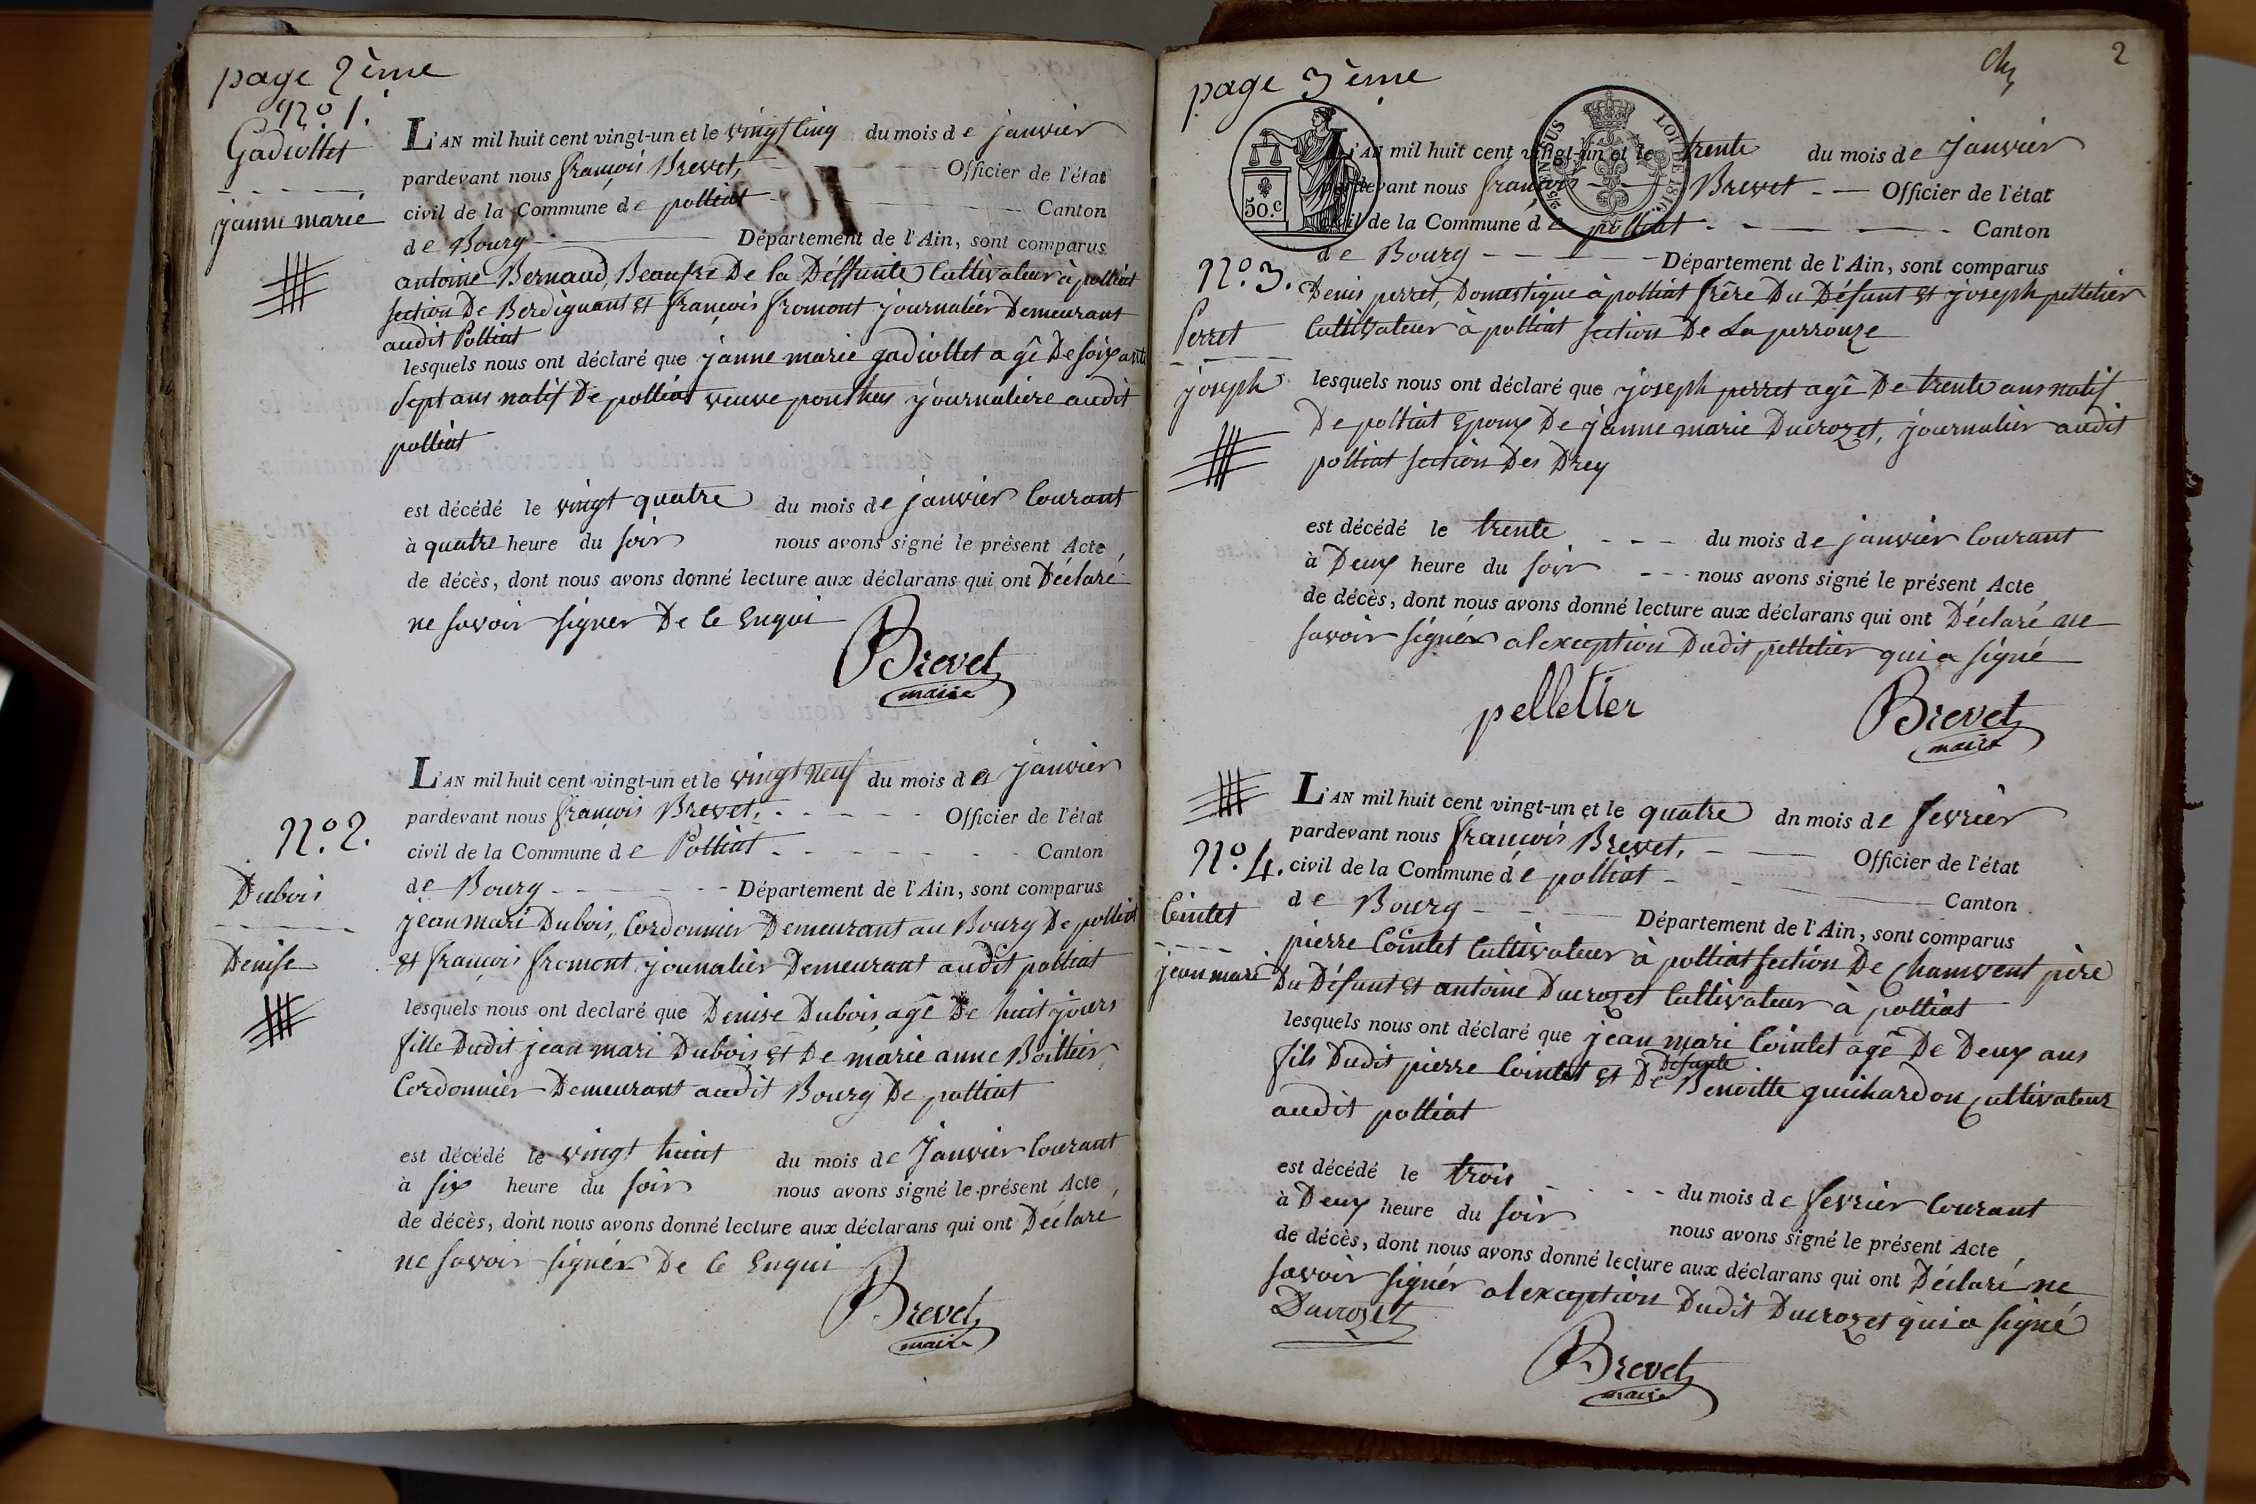 page 2ème
No. 1.
Gadiollet
janne marie
L'AN mil huit cent vingt-un et le vingt cinq du mois de janvier
pardevant nous françois Brevet, Officier de l'état
civil de la Commune de polliat Canton
de Bourg Département de l'Ain, sont comparus
antoine Bernaud, Beaufre De la Déffunte Cultivateur à polliat
section De Berdignant et françois fromont journalier Demeurant
audit Polliat
lesquels nous ont déclaré que janne marie gadiollet agê De soixante
sept ans natif De polliat veuve ponthus journaliere audit
polliat
est décédé le vingt quatre du mois de janvier Courant
à quatre heure du soir nous avons signé le présent Acte,
de décès, dont nous avons donné lecture aux déclarans qui ont Déclaré
ne savoir signer De ce Enqui
Brevet
maire
No. 2.
Dubois
Denise
L'AN mil huit cent vingt-un et le vingt neuf du mois de janvier
pardevant nous françois Brevet, Officier de l'état
civil de la Commune de Polliat Canton
de Bourg Département de l'Ain, sont comparus
jean mari Dubois, Cordonnier Demeurant au Bourg De polliat
et françois fromont journalier Demeurant audit polliat
lesquels nous ont declaré que Denise Dubois agê De huit jours
fille Dudit jean mari Dubois et De marie anne Boillier
Cordonnier Demeurant audit Bourg De polliat
est décédé le vingt huit du mois de Janvier Courant
à six heure du soir nous avons signé le présent Acte,
de décès, dont nous avons donné lecture aux déclarans qui ont Déclaré
ne savoir signér De ce Enqui
Brevet
maire
2
page 3ème
50.c
LOI DE 1816
L'AN mil huit cent vingt-un et le trente du mois de Janvier
pardevant nous françois Brevet Officier de l'état
civil de la Commune de polliat Canton
de Bourg Département de l'Ain, sont comparus
No. 3.
Perret
joseph
Denis perret, Domestique à polliat frère Du Défunt et joseph pelletier
Cultivateur à polliat section De La perrouze
lesquels nous ont déclaré que joseph perret agê De trente ans natif
De polliat Epoux De janne marie Ducrozet, journalier audit
polliat section Des Drey
est décédé le trente du mois de janvier Courant
à Deux heure du soir nous avons signé le présent Acte
de décès, dont nous avons donné lecture aux déclarans qui ont Déclaré ne
savoir signér alexception Dudit pelletier qui a signé
pelletier
Brevet
maire
No. 4.
Cointet
jean mari
L'AN mil huit cent vingt-un et le quatre dn mois de fevrier
pardevant nous françois Brevet, Officier de l'état
civil de la Commune de polliat Canton
de Bourg Département de l'Ain, sont comparus
pierre Cointet Cultivateur à polliat section De Chamvent père
Du Défunt et antoine Ducrozet Cultivateur à polliat
lesquels nous ont déclaré que jean mari Cointet agê De Deux ans
fils Dudit pierre Cointet et De Défunte Benoitte guichardon Cultivateur
audit polliat
est décédé le trois du mois de fevrier Courant
à Deux heure du soir nous avons signé le présent Acte,
de décès, dont nous avons donné lecture aux déclarans qui ont Déclaré ne
savoir signér alexception Dudit Ducrozet qui a signé
Ducrozet
Brevet
maire